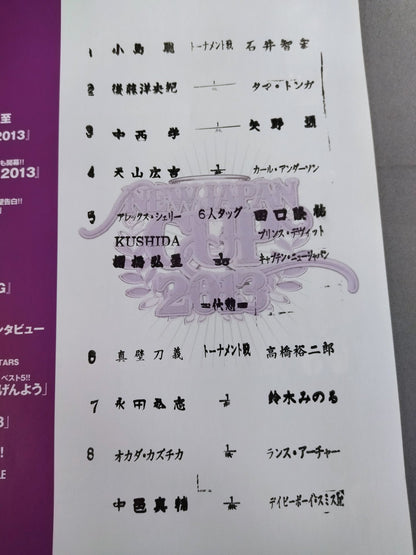 至
2013』
も開幕!!
2013』
層告白!!
G』
ンタビュー
TARS
ベスト5!!
げんよう」
3』
!
LE
1 小島聡 トーナメント戦 石井智宏
2 後藤洋央紀 1/無 タマ・トンガ
3 中西学 矢野通
4 天山広吉 1/無 カール・アンダーソン
NEW JAPAN
CUP
2013
5 アレックス・シェリー 6人タッグ 田口隆祐
KUSHIDA プリンス・デヴィット
棚橋弘至 1/30 キャプテン・ニュージャパン
―休憩―
6 真壁刀義 トーナメント戦 高橋裕二郎
7 永田裕志 1/無 鈴木みのる
8 オカダ・カズチカ 1/無 ランス・アーチャー
中邑真輔 1/無 デイビーボーイ・スミスJr